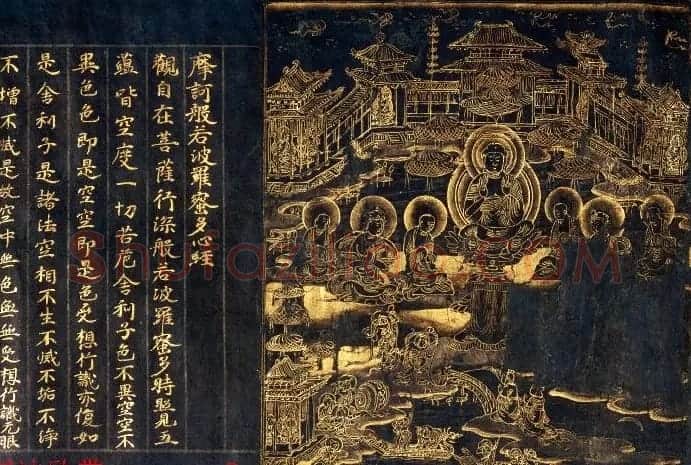 摩訶般若波羅蜜多心經
觀自在菩薩行深般若波羅蜜多時照見五
蘊皆空度一切苦厄舍利子色不異空空不
異色色即是空空即是色受想行識亦復如
是舍利子是諸法空相不生不滅不垢不淨
不增不減是故空中無色無無受想行識无眼
ShufaZiliao.COM